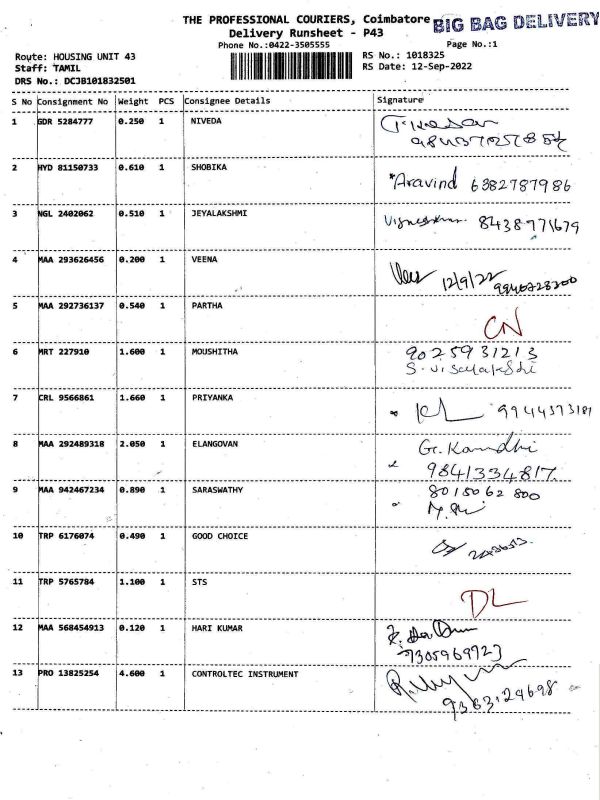 THE PROFESSIONAL COURIERS, Coimbatore BIG BAG DELIVERY
Delivery Runsheet - P43
Phone No.:0422-3505555 Page No.:1
Route: HOUSING UNIT 43 RS No.: 1018325
Staff: TAMIL RS Date: 12-Sep-2022
DRS No.: DCJB101832501
S No Consignment No Weight PCS Consignee Details Signature
1 GDR 5284777 0.250 1 NIVEDA
2 HYD 81150733 0.610 1 SHOBIKA
*Aravind 6382787986
3 NGL 2402062 0.510 1 JEYALAKSHMI
8438971679
4 MAA 293626456 0.200 1 VEENA
12/9/22
5 MAA 292736137 0.540 1 PARTHA
CN
6 MRT 227910 1.600 1 MOUSHITHA 9025931213
7 CRL 9566861 1.660 1 PRIYANKA
9944373181
8 MAA 292489318 2.050 1 ELANGOVAN
9841334817
9 MAA 942467234 0.890 1 SARASWATHY 8015062800
10 TRP 6176074 0.490 1 GOOD CHOICE
11 TRP 5765784 1.100 1 STS
DL
12 MAA 568454913 0.120 1 HARI KUMAR
13 PRO 13825254 4.600 1 CONTROLTEC INSTRUMENT